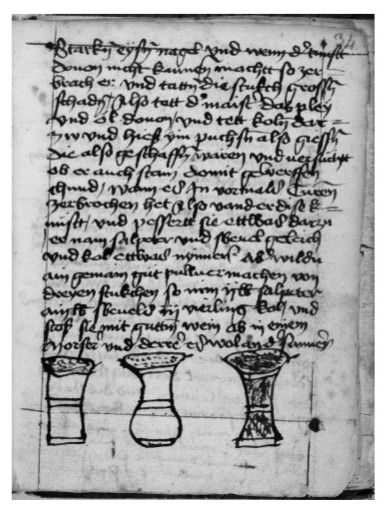 34
Starkn eysn nagel vnd wenn d tunst
dovon nicht kannen machtt so zer
brach er vnd tattn die stukch grossn
schadn Also tett d maist Das pley
vnd öl dovon vnd tett koln dar
zw vnd hiess ym puchsn also giessn
die also geschaffn waren vnd versucht
ob er auch stain domit gewerffen
chund wann es In vormals
zerbrochen het Also vand er dise k
unst vnd pessertt sie ettwas darzu
er nam salpeter vnd sbeuel geleich
vnd kol ettwas mynner wildu
ain gemain gut pulluer machen von
dreyen stukchen so nym salpeter
sbeuels vierling koln vnd
stos sie mit guttm wein ab in einem
Morser vnd derre es wol an d sunnen